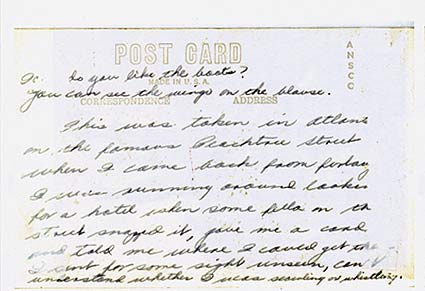 POST CARD
MADE IN U.S.A.
ANSCO
Do you like the boots?
You can see the wings on the blouse.
CORRESPONDENCE ADDRESS
This was taken in Atlanta
on the famous Peachtree Street
when I came back from furlough
I was running around lookin
for a hotel when some fella on th
street snapped it, gave me a card
and told me where I could get the
I sent for some sight unseen, can't
understand whether I was scowling or whistling.